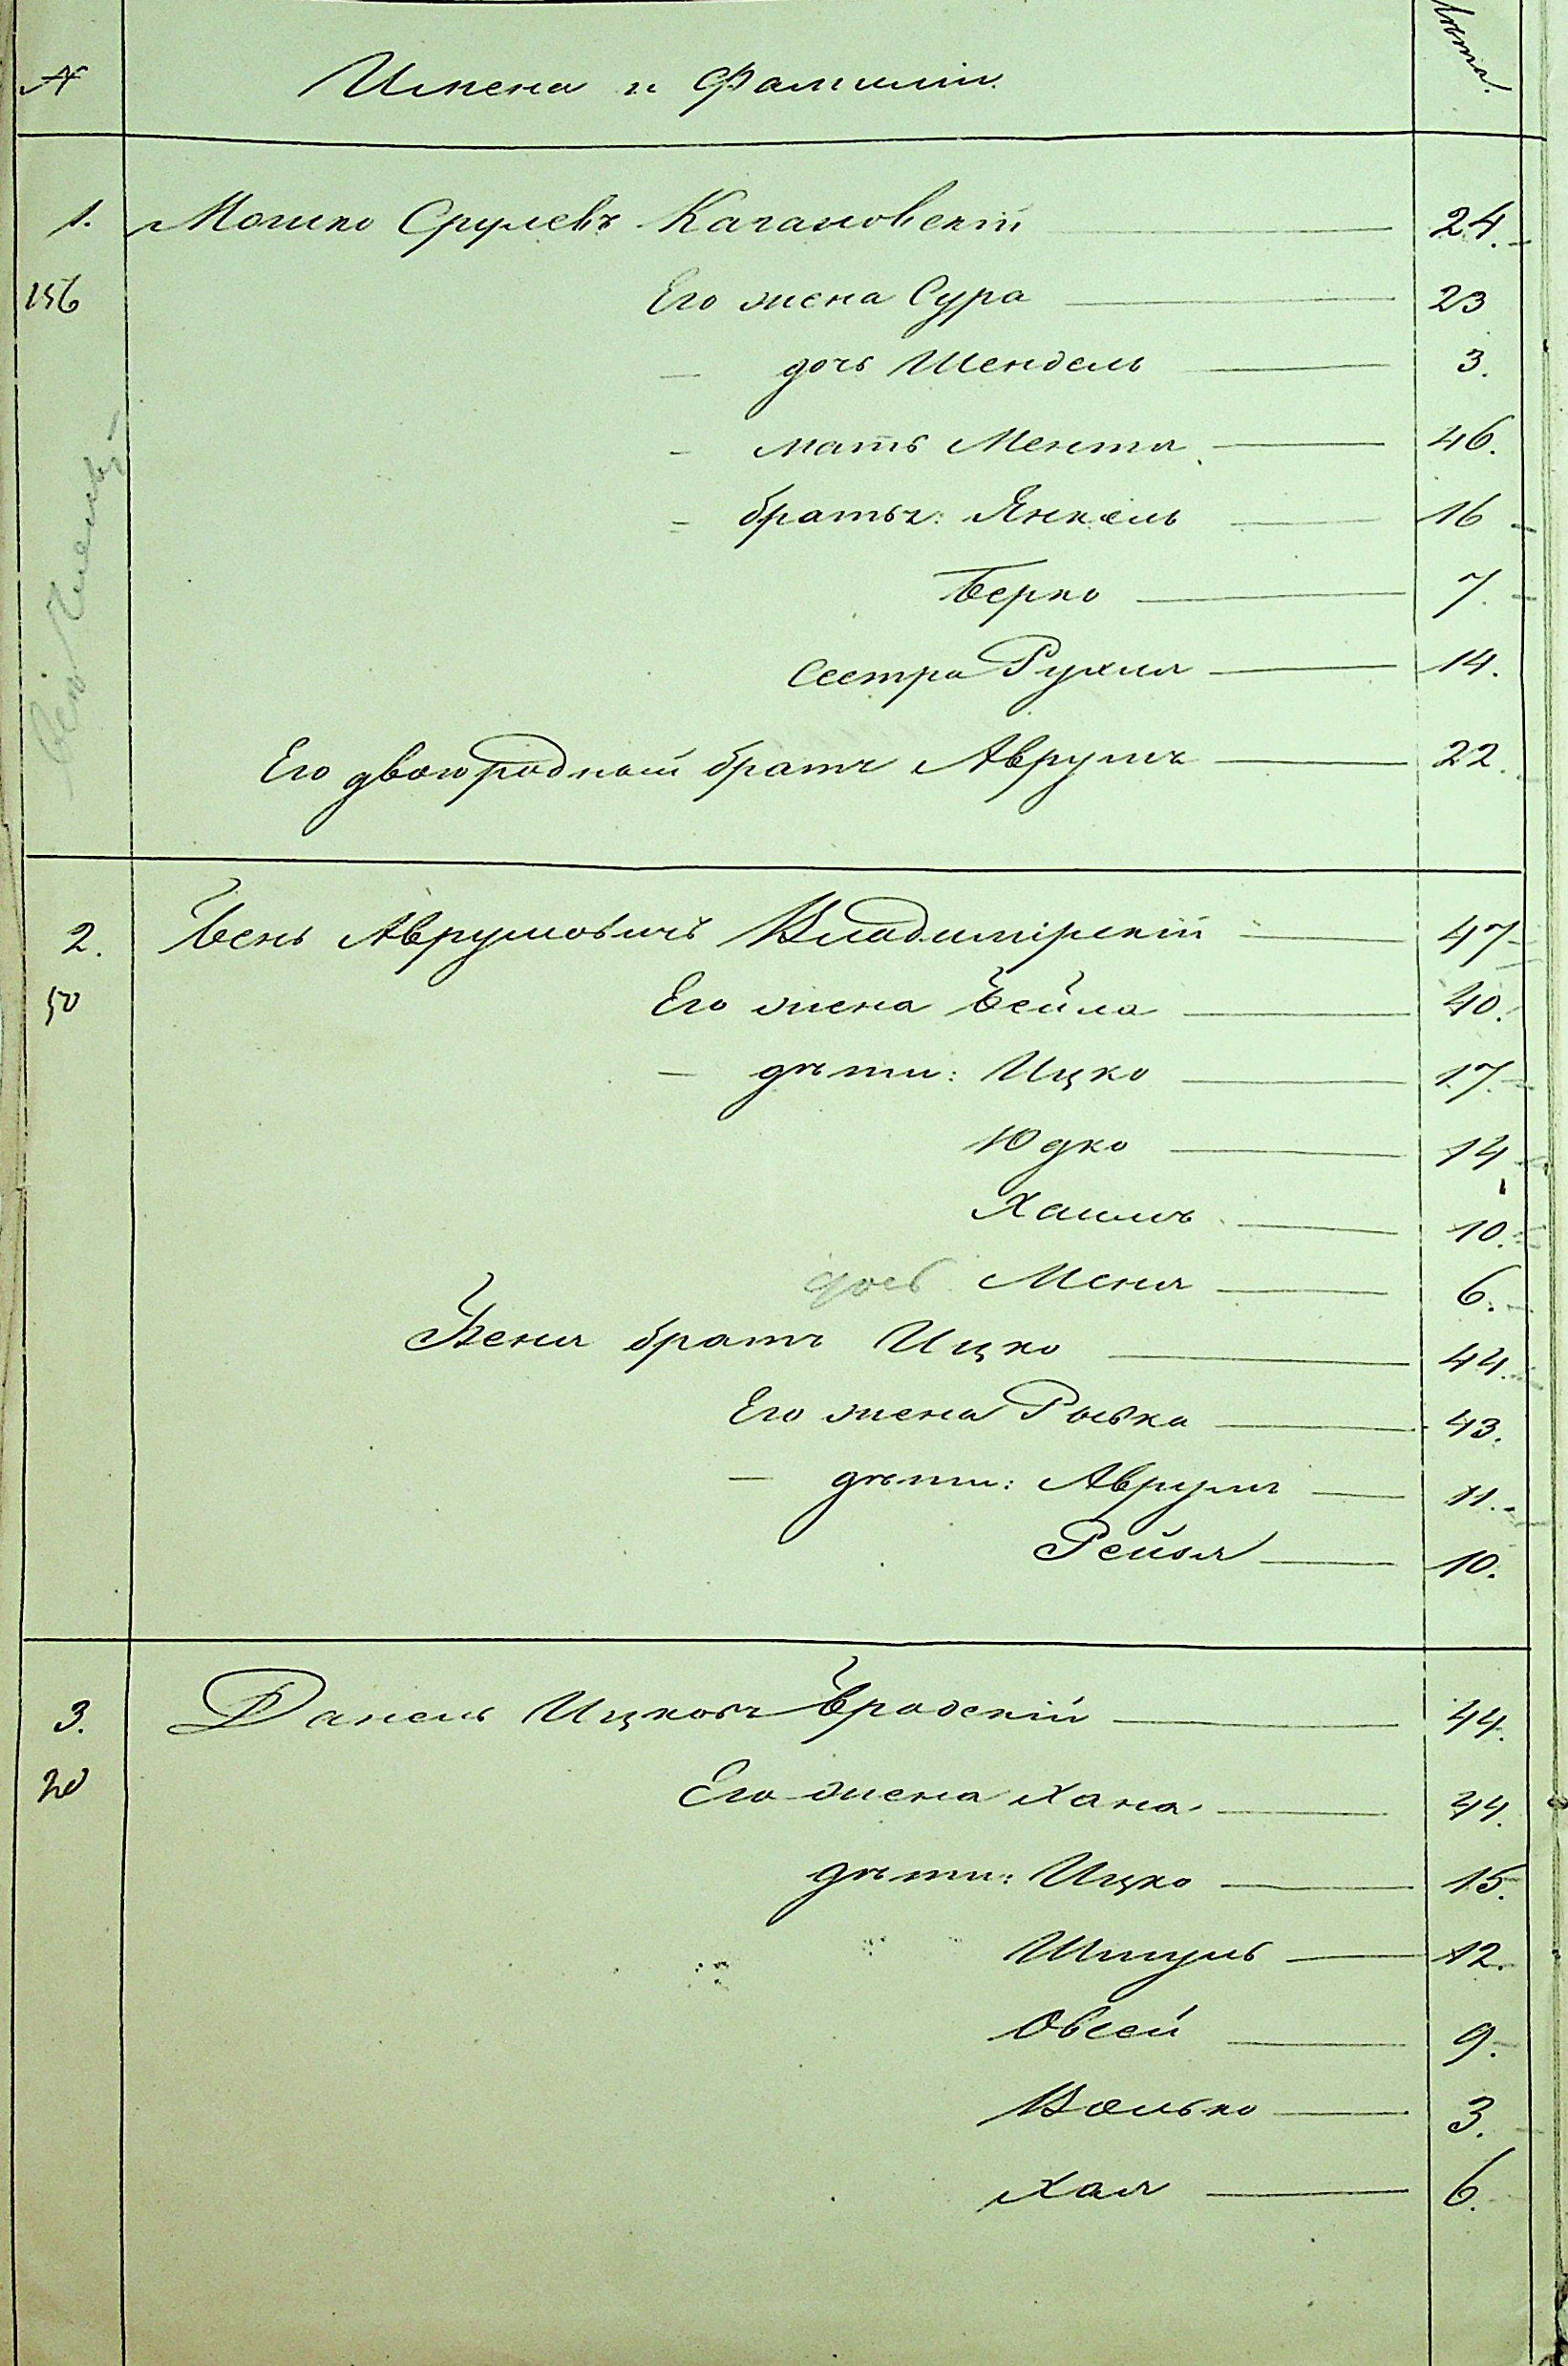 № Имена и Фамиліи. Лѣта.
1. Мошко Срулевъ Кагановскій 24.
156 Его жена Сура 23
— дочь Шендель 3.
— мать Мента 46.
— братья: Янкель 16
Берко 7.
сестра Рухля 14.
Его двоюродный братъ Аврумъ 22.
2. Бень Аврумовичъ Владимірскій 47
50 Его жена Бейла 40.
— дѣти: Ицко 17.
Юдко 14
Хаимъ 10.
дочь Меня 6.
Беня братъ Ицко 44.
Его жена Роська 43.
— дѣти: Аврумъ 11.
Рейзя 10.
3. Данель Ицковъ Бродскій 44.
20 Его жена Хана 44.
дѣти: Ицко 15.
Шмуль 12.
Овсей 9.
Волько 3.
Хая 6.